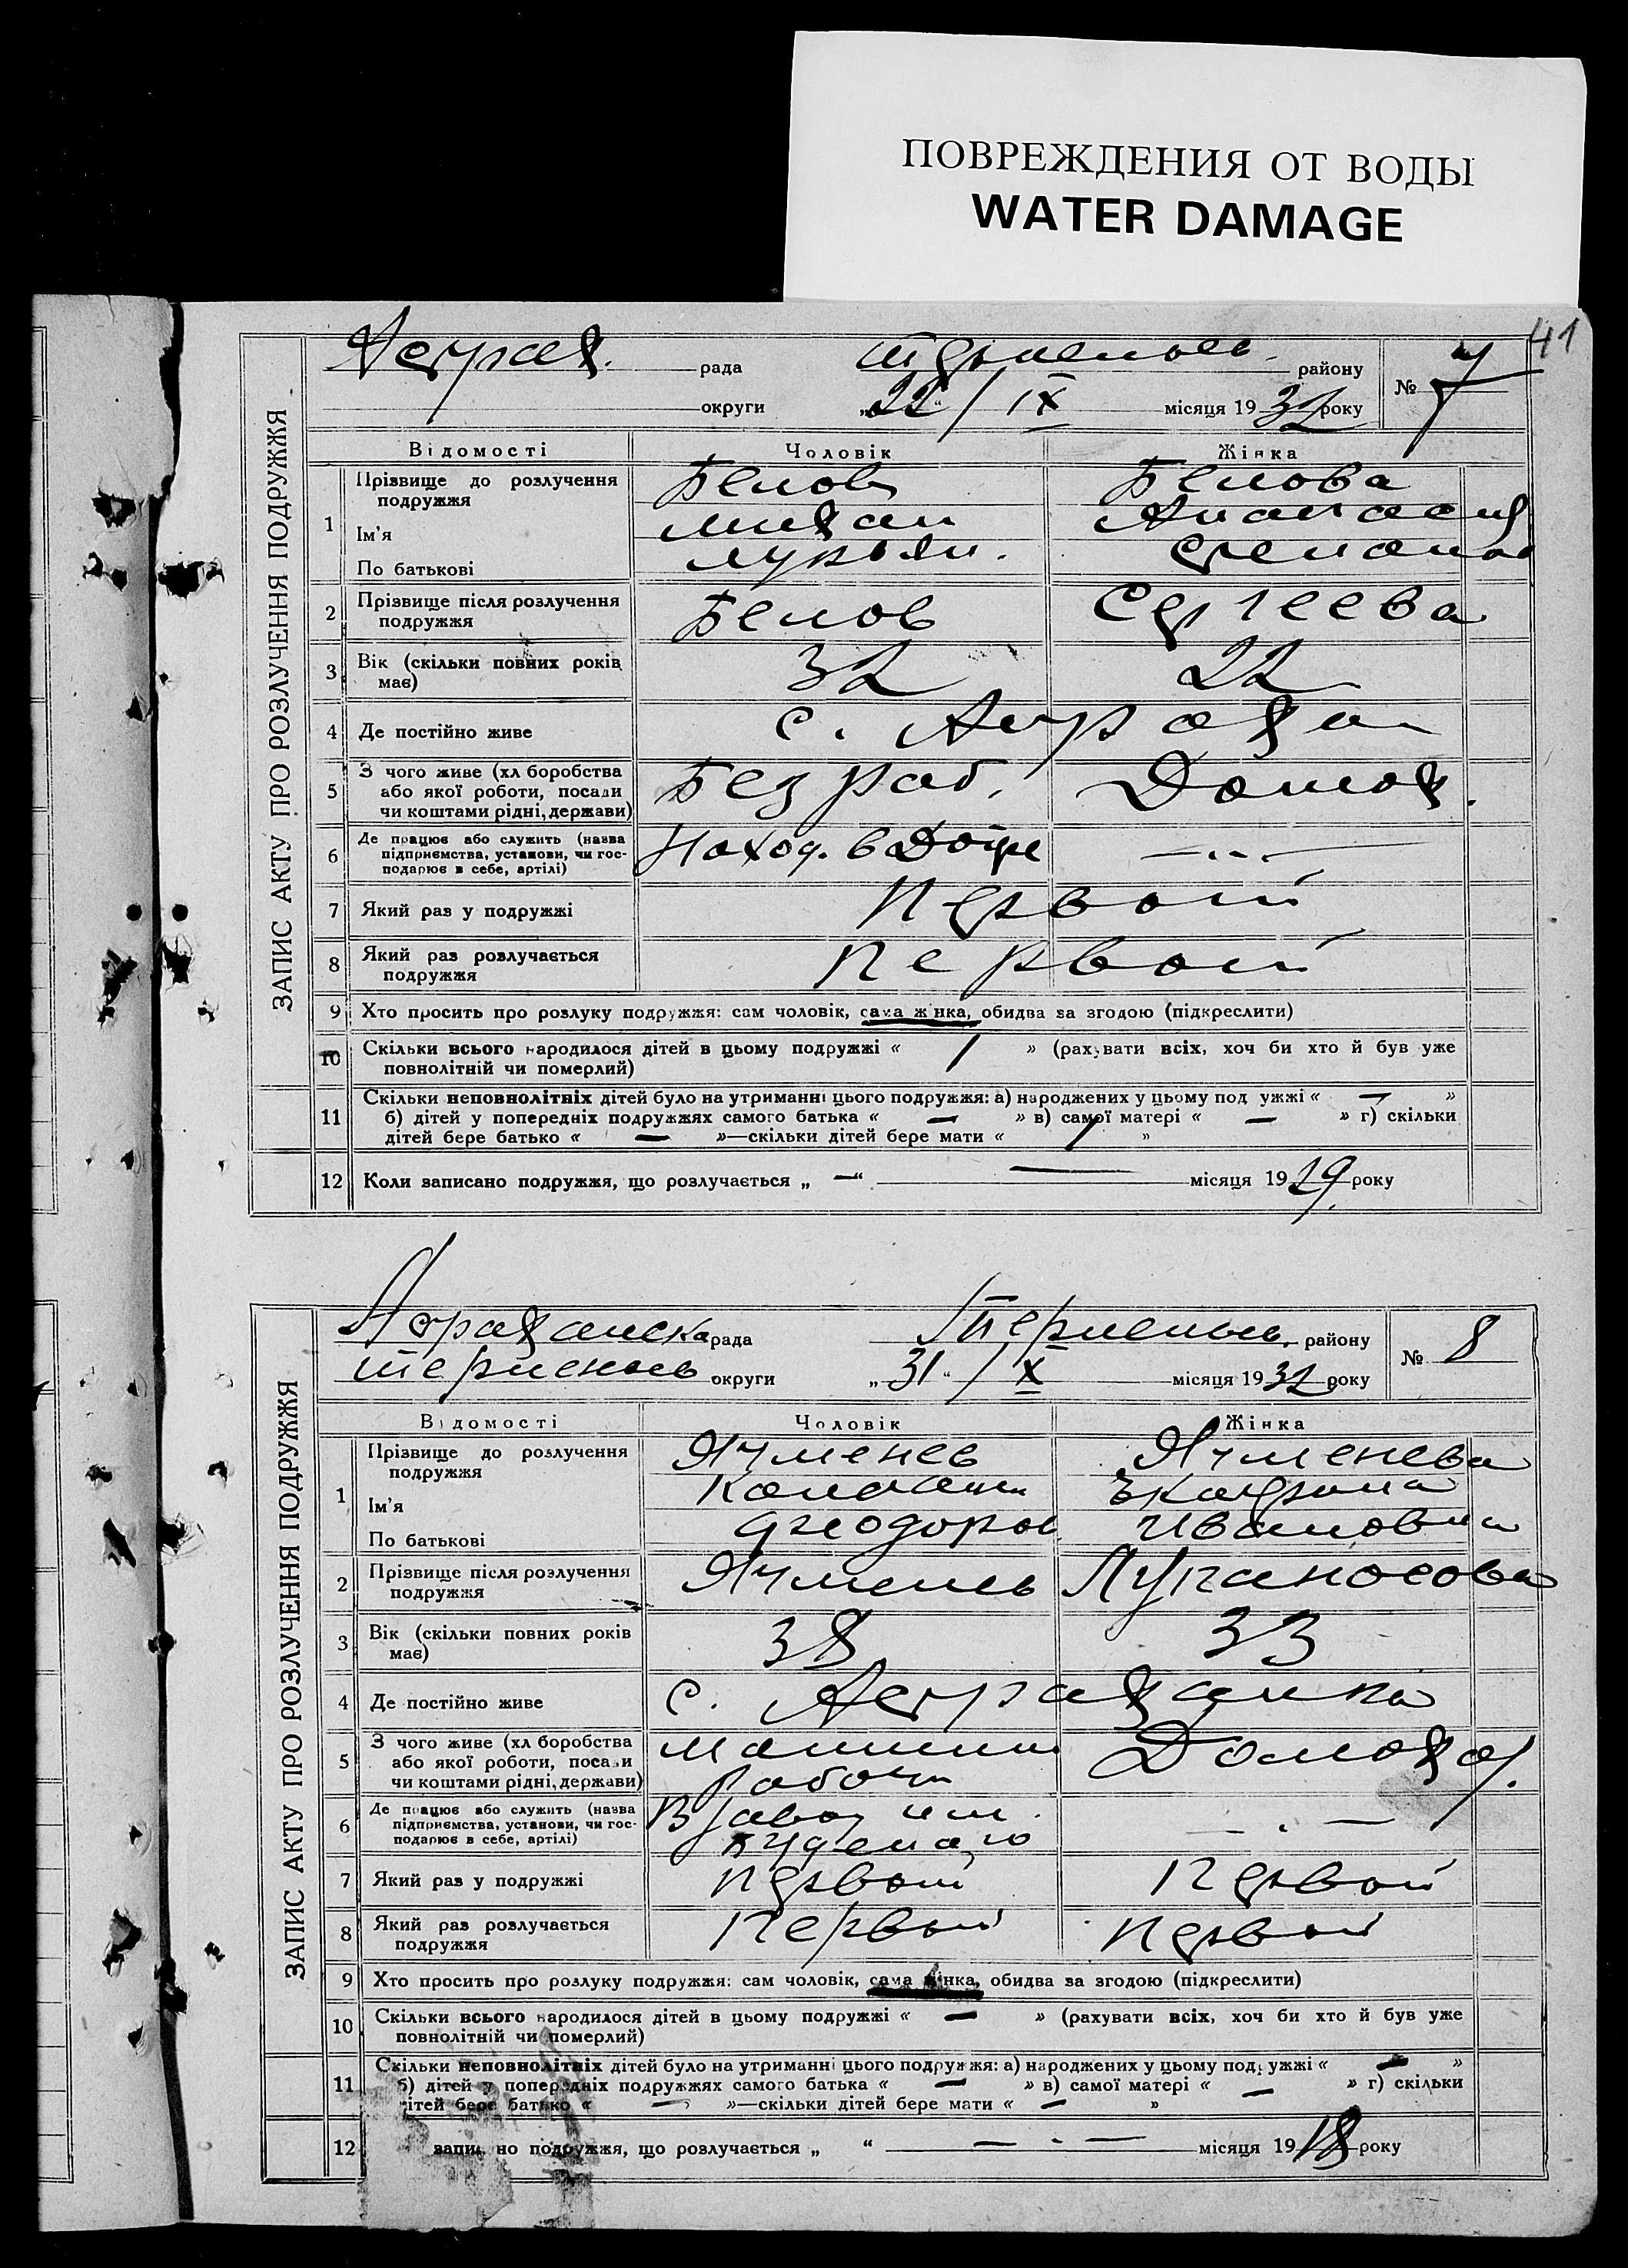 ПОВРЕЖДЕНИЯ ОТ ВОДЫ
WATER DAMAGE
41
ЗАПИС АКТУ ПРО РОЗЛУЧЕННЯ ПОДРУЖЖЯ
рада району № 7
округи „22“ / IX місяця 1932 року
Відомості Чоловік Жінка
1 Прізвище до розлучення подружжя Белов Белова
Ім'я Михаил Анастасия
По батькові Лукьян. Степанов
2 Прізвище після розлучення подружжя Белов Сергеева
3 Вік (скільки повних років має) 32 22
4 Де постійно живе с.
5 З чого живе (хліборобства або якої роботи, посади чи коштами рідні, держави) Без раб. Домох.
6 Де працює або служить (назва підприємства, установи, чи господарює в себе, артілі) Наход. в —
7 Який раз у подружжі Первый
8 Який раз розлучається подружжя Первый
9 Хто просить про розлуку подружжя: сам чоловік, сама жінка, обидва за згодою (підкреслити)
10 Скільки всього народилося дітей в цьому подружжі « 1 » (рахувати всіх, хоч би хто й був уже
повнолітній чи померлий)
11 Скільки неповнолітніх дітей було на утриманні цього подружжя: а) народжених у цьому подружжі « — »
б) дітей у попередніх подружжях самого батька « — » в) самої матері « — » г) скільки
дітей бере батько « — »—скільки дітей бере мати « 1 »
12 Коли записано подружжя, що розлучається „ — “ — місяця 1929 року
ЗАПИС АКТУ ПРО РОЗЛУЧЕННЯ ПОДРУЖЖЯ
Астраханска рада району № 8
округи „31“ / X місяця 1932 року
Відомості Чоловік Жінка
1 Прізвище до розлучення подружжя Ячменев Ячменева
Ім'я Екатрина
По батькові Ивановна
2 Прізвище після розлучення подружжя Ячменев
3 Вік (скільки повних років має) 38 33
4 Де постійно живе с. Астраханка
5 З чого живе (хліборобства або якої роботи, посади чи коштами рідні, держави) Домохоз.
6 Де працює або служить (назва підприємства, установи, чи господарює в себе, артілі) В завод им. —
7 Який раз у подружжі Первый Первый
8 Який раз розлучається подружжя Первый Первый
9 Хто просить про розлуку подружжя: сам чоловік, сама жінка, обидва за згодою (підкреслити)
10 Скільки всього народилося дітей в цьому подружжі « — » (рахувати всіх, хоч би хто й був уже
повнолітній чи померлий)
11 Скільки неповнолітніх дітей було на утриманні цього подружжя: а) народжених у цьому подружжі « — »
б) дітей у попередніх подружжях самого батька « — » в) самої матері « — » г) скільки
дітей бере батько « — »—скільки дітей бере мати « — »
12 подружжя, що розлучається „ “ — місяця 1918 року